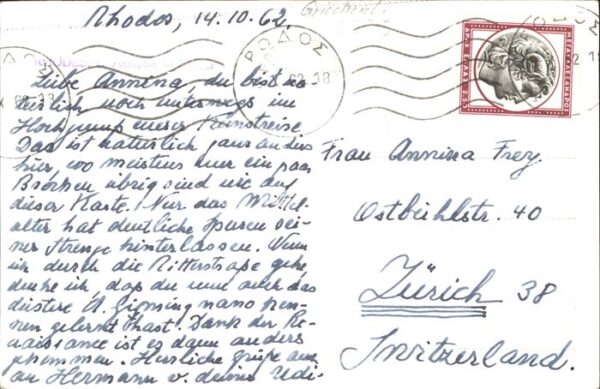 Rhodos, 14.10.62
Griechenl.
ΡΟΔΟΣ
62.18
ΜΕΓΑΣ ΑΛΕΞΑΝΔΡΟΣ
ΔΡΑΧ. ΕΛΛΑΣ 2.50
Liebe Annina, du bist
noch unterwegs im
eurer Kunstreise.
Das ist natürlich ganz anders
hier, wo meistens nur ein paar
Brocken übrig sind wie auf
dieser Karte. Nur das Mittel-
alter hat deutliche Spuren sei-
ner Strenge hinterlassen. Wenn
ich durch die Ritterstrasse gehe,
denke ich, dass du nun auch das
düstere S. Gimignano ken-
nen gelernt hast. Dank der Re-
naissance ist es dann anders
gekommen. Herzliche Grüsse auch
an Hermann v. deiner Udi-
Frau Annina Frey
Ostbühlstr. 40
Zürich 38
Switzerland.